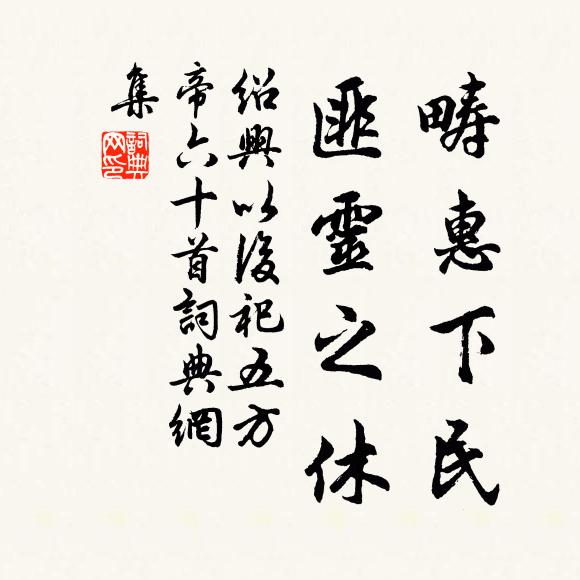 畴惠下民
匪靈之休
紹興以後祀五方
帝六十首詞典網
集
詞典網印